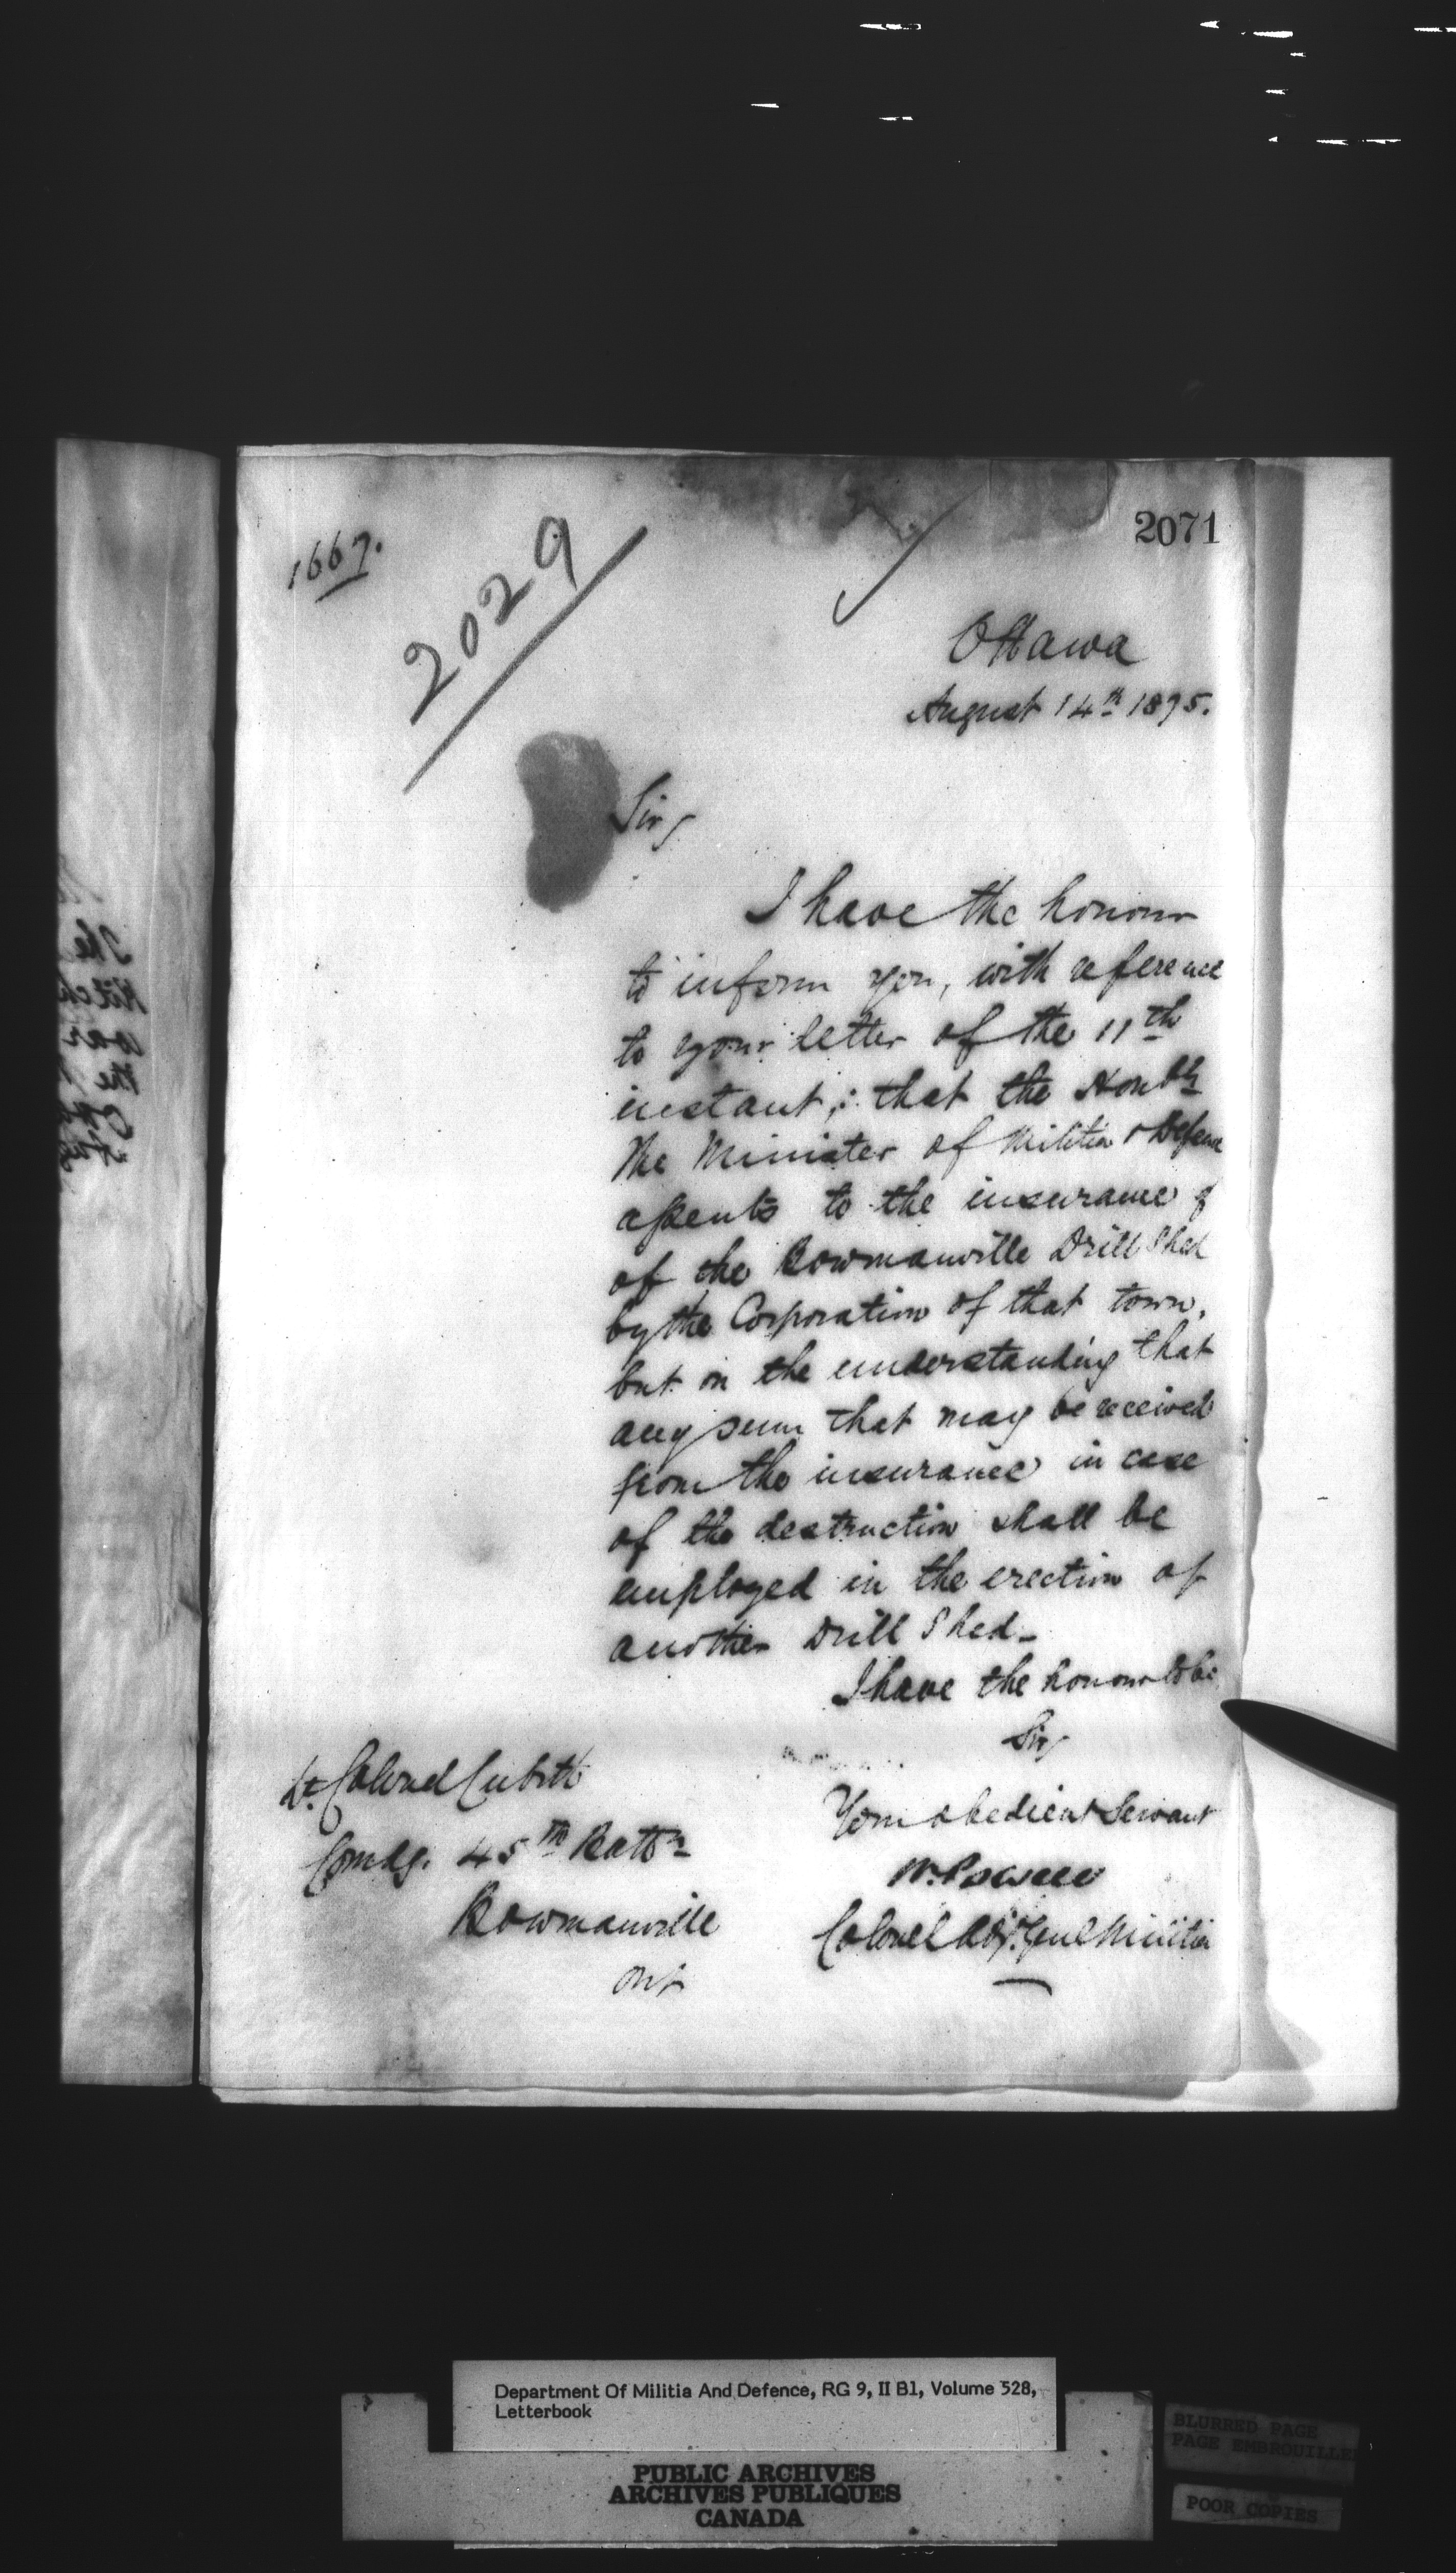 1667.
2029
2071
Ottawa
August 14th 1895.
Sir,
I have the honour
to inform you, with reference
to your letter of the 11th
instant, that the Honble
The Minister of Militia & Defence
assents to the insurance of
of the Bowmanville Drill Shed
by the Corporation of that town,
but on the understanding that
any sum that may be received
from the insurance in case
of the destruction shall be
employed in the erection of
another Drill Shed_
I have the honour to be
Sir,
Your obedient Servant
W. Powell
Colonel Adj. Genl Militia
Lt. Colonel Cubitt
Comdg. 45th Battn
Bowmanville
Ont
Department Of Militia And Defence, RG 9, II B1, Volume 528,
Letterbook
PUBLIC ARCHIVES
ARCHIVES PUBLIQUES
CANADA
BLURRED PAGE
PAGE EMBROUILLEE
POOR COPIES